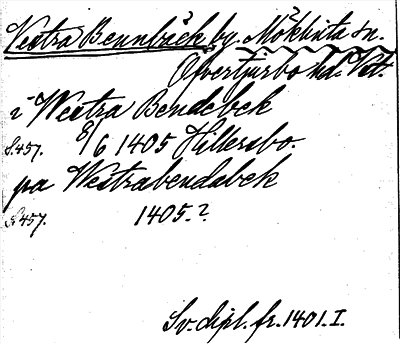 Vestra Bennbäck by. Möklinta sn.
Öfvertjurbo hd. Vstl.
i Westra Bendebek
S. 457. 8/6 1405 Hillersbo.
pa Westrabendabek
S. 457. 1405.?
Sv. dipl. fr. 1401. I.